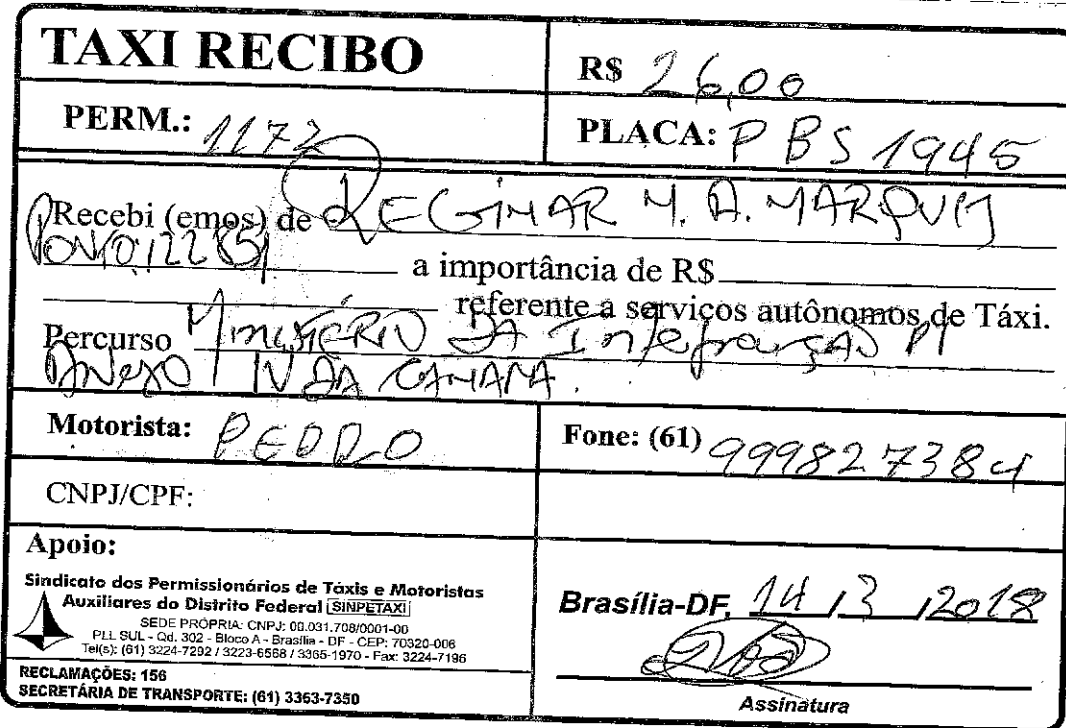 TAXI RECIBO
R$ 26,00
PERM.: 1172
PLACA: PBS 1945
Recebi (emos) de REGIMAR M. A. MARQUES
a importância de R$
referente a serviços autônomos de Táxi.
Percurso MINISTÉRIO DA Integração P/
ANEXO IV DA CAMARA.
Motorista: PEDRO
Fone: (61) 999827384
CNPJ/CPF:
Apoio:
Sindicato dos Permissionários de Táxis e Motoristas
Auxiliares do Distrito Federal SINPETAXI
SEDE PRÓPRIA: CNPJ: 00.031.708/0001-00
PLL SUL - Qd. 302 - Bloco A - Brasília - DF - CEP: 70320-006
Tel(s): (61) 3224-7292 / 3223-6568 / 3365-1970 - Fax: 3224-7196
RECLAMAÇÕES: 156
SECRETÁRIA DE TRANSPORTE: (61) 3363-7350
Brasília-DF, 14 / 3 / 2018
Assinatura